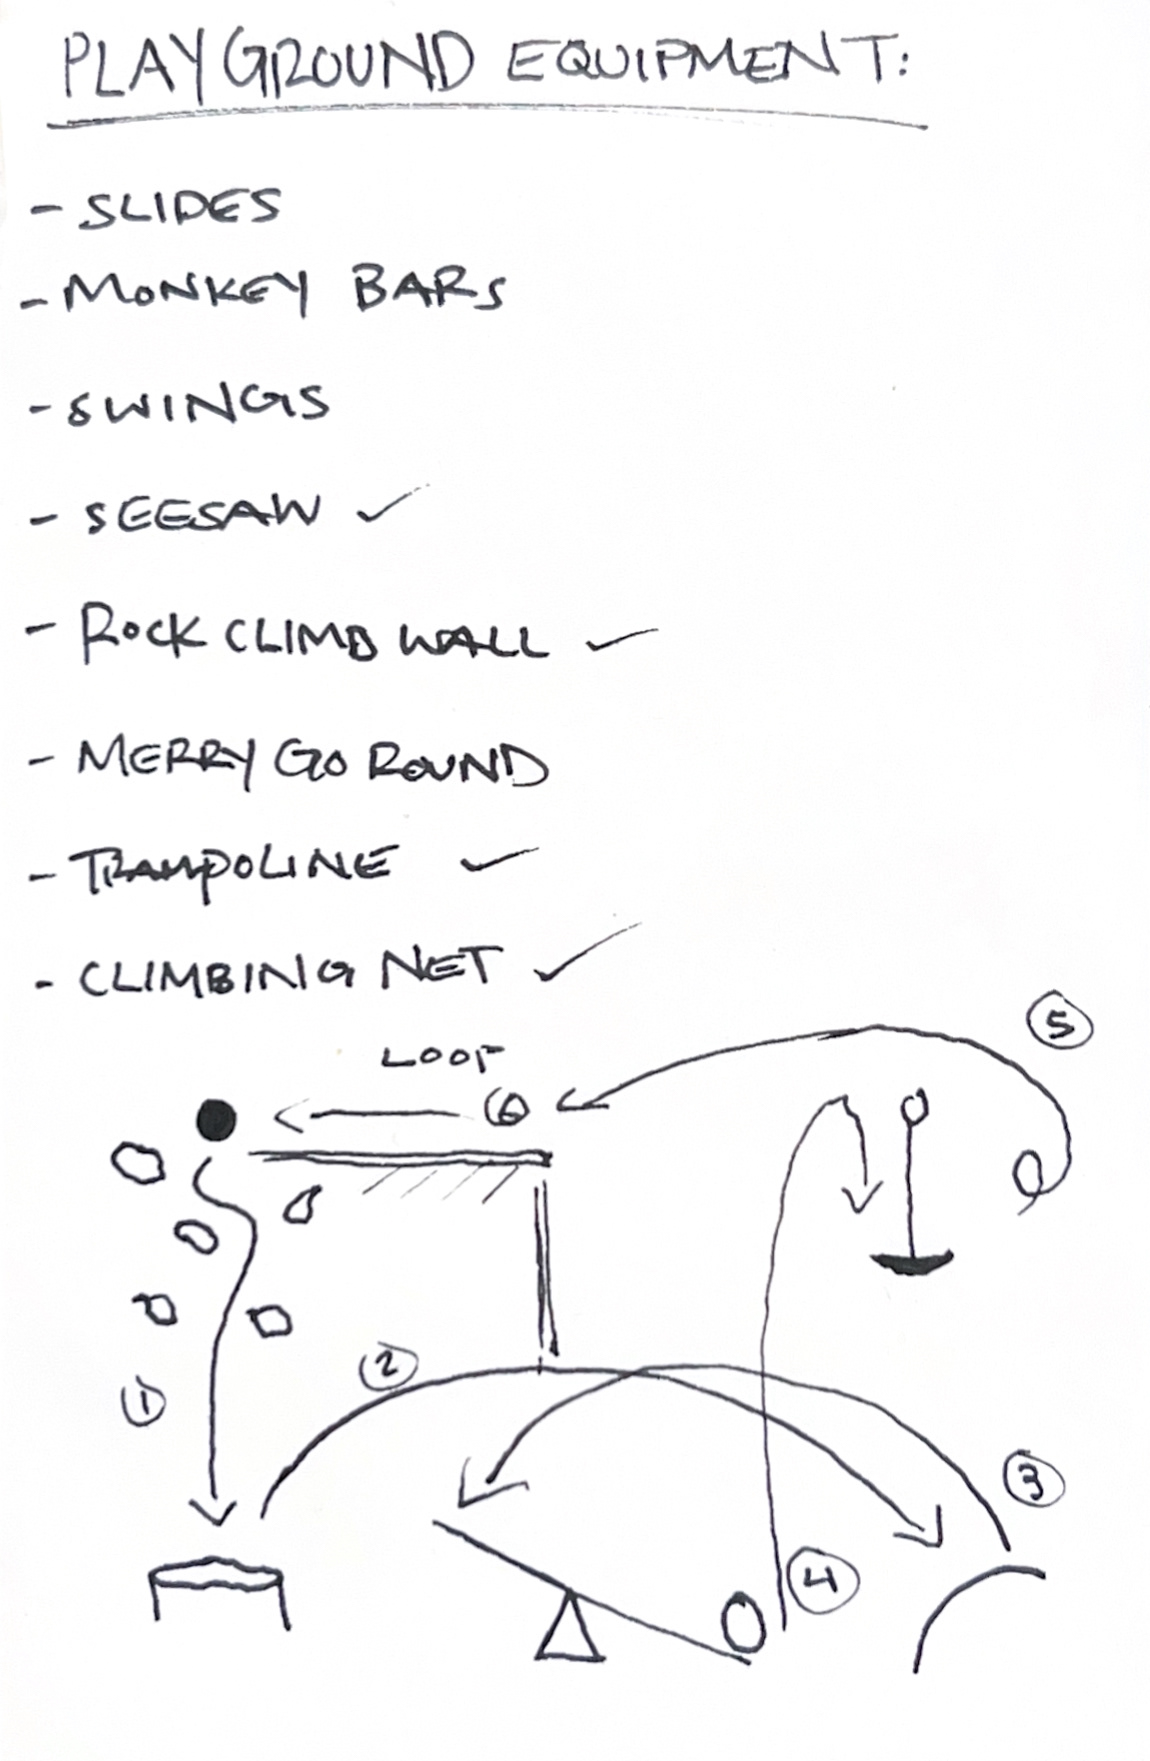 PLAYGROUND EQUIPMENT:
- SLIDES
- MONKEY BARS
- SWINGS
- SEESAW ✓
- ROCK CLIMB WALL ✓
- MERRY GO ROUND
- TRAMPOLINE ✓
- CLIMBING NET ✓
5
LOOP
6
2
1
3
4